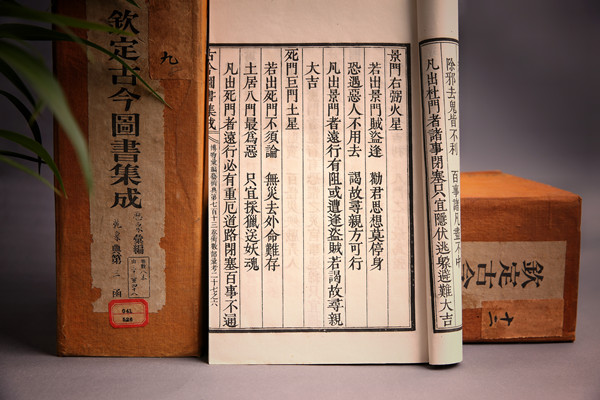 除邪去鬼皆不利 百事諸凡盡不中
凡出杜門者諸事閉塞只宜隱伏逃躲避難大吉
景門右弼火星
若出景門賊盜逢 勸君思想莫停身
恐遇惡人不用去 謁故尋親方可行
凡出景門者遠行有阻或遭逢盜賊若謁故尋親
大吉
死門巨門土星
若出死門不須論 無災去外命難存
土居八門最爲惡 只宜採獵送妖魂
凡出死門者遠行必有重厄道路閉塞百事不通
古今圖書集成 博物彙編藝術典第七百十三卷術數部彙考二十七之六
九
欽定古今圖書集成
彙編
乾象典第二函
041
欽定古今
十二